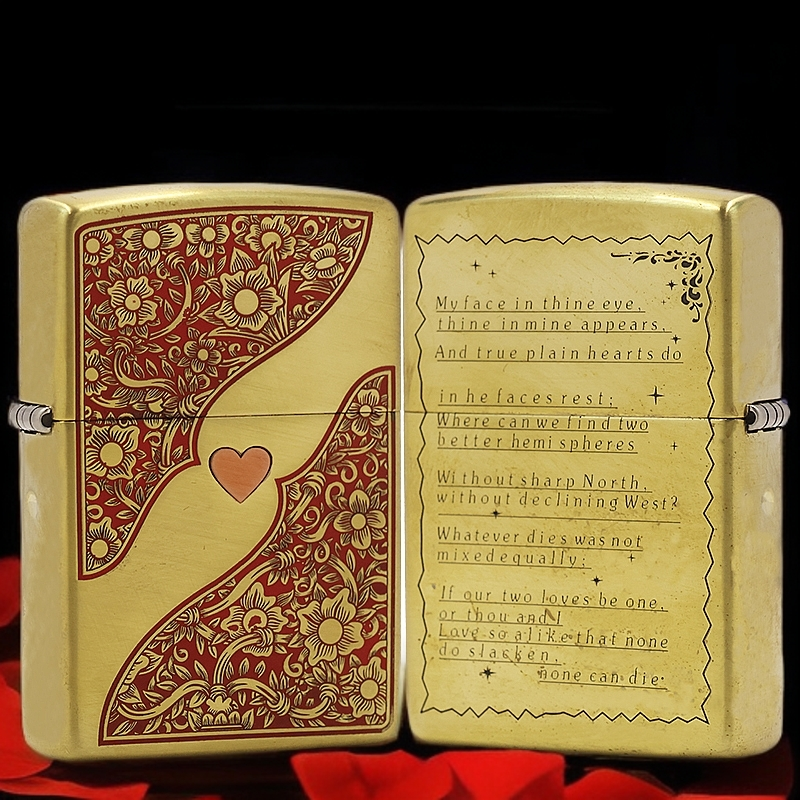 My face in thine eye,
thine in mine appears,
And true plain hearts do
in he faces rest;
Where can we find two
better hemi spheres
Without sharp North,
without declining West?
Whatever dies was not
mixed equally;
If our two loves be one,
or thou and I
Love so alike that none
do slacken,
none can die.